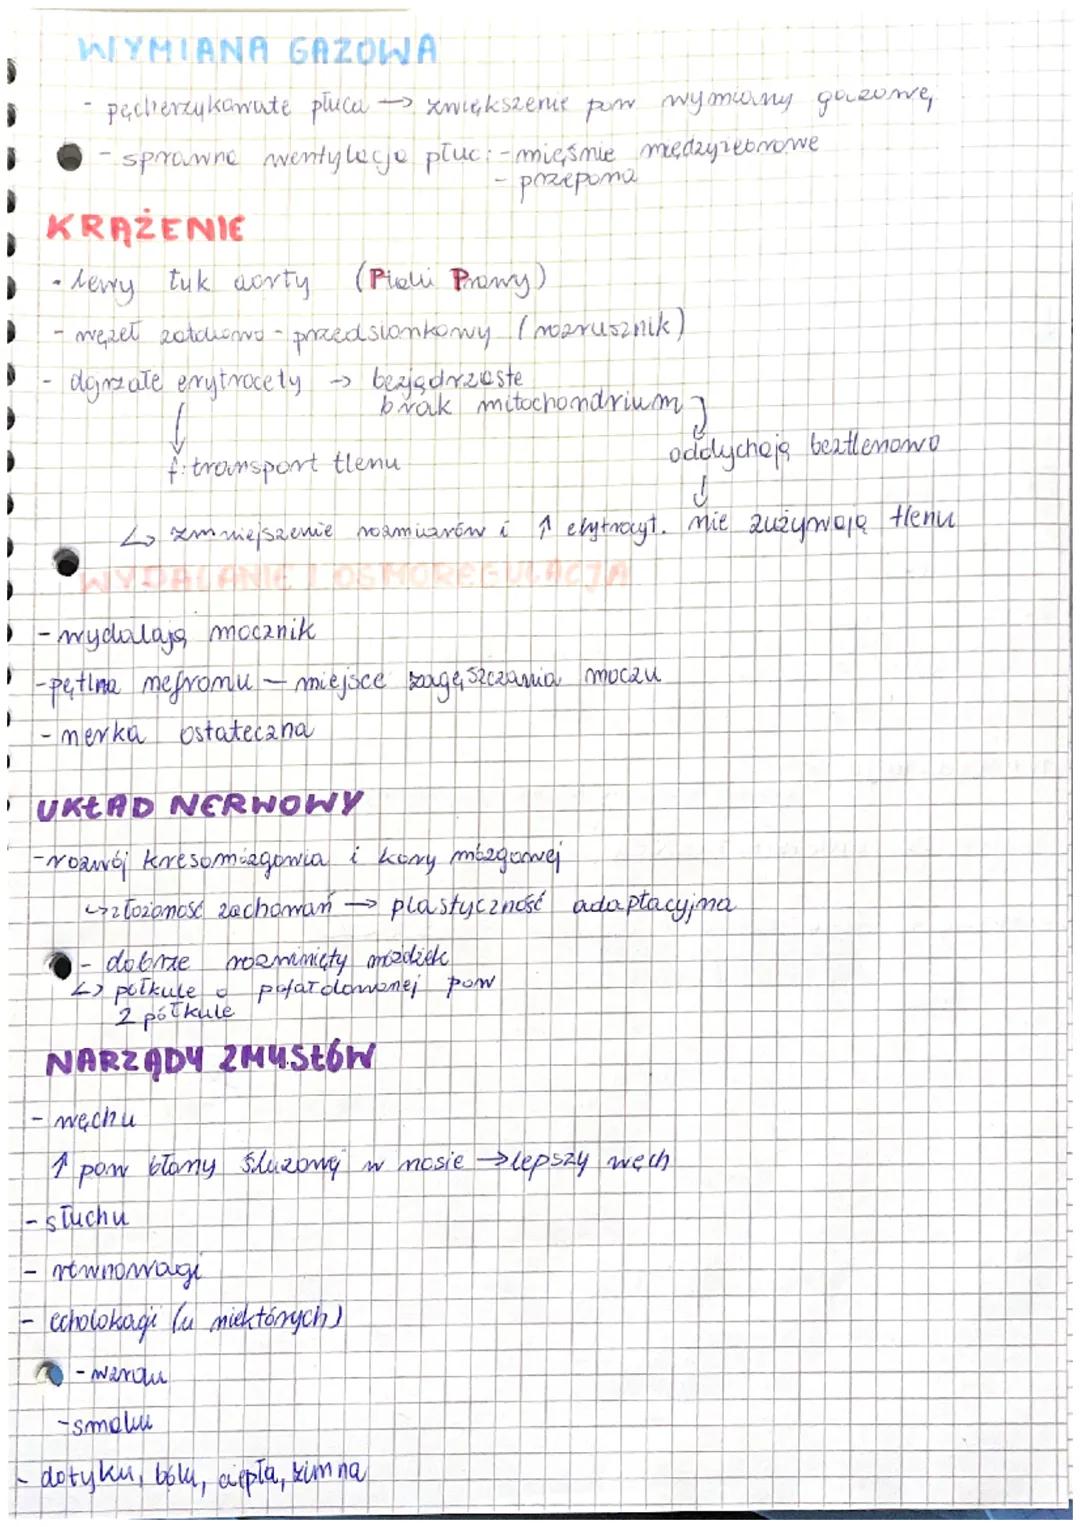 WYMIANA GAZOWA
- pęcherzykowate płuca → zwiększenie pow wymiany gazowej
- sprawna wentylacja płuc: - mięśnie międzyżebrowe
- przepona
KRĄŻENIE
- lewy łuk aorty (Ptaki Prawy)
- węzeł zatokowo - przedsionkowy (rozrusznik)
- dojrzałe erytrocyty → bezjądrzaste
brak mitochondrium
f: transport tlenu
oddychają beztlenowo
↳ zmniejszenie rozmiarów i ↑ erytrocyt. nie zużywają tlenu
WYDALANIE I OSMOREGULACJA
- wydalają mocznik
- pętlna nefronu – miejsce zagęszczania moczu
- nerka ostateczna
UKŁAD NERWOWY
- rozwój kresomózgowia i kory mózgowej
↳ złożoność zachowań → plastyczność adaptacyjna
- dobrze rozwinięty móżdżek
↳ półkule o pofałdowanej pow
2 półkule
NARZĄDY ZMYSŁÓW
- węchu
↑ pow błony śluzowej w nosie → lepszy węch
- słuchu
- równowagi
- echolokacji (u niektórych)
- wzroku
- smaku
- dotyku, bólu, ciepła, zimna